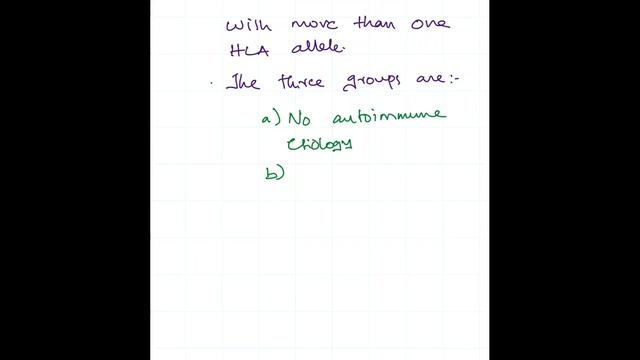 with more than one
HLA allele.
. The three groups are:-
a) No autoimmune
etiology
b)